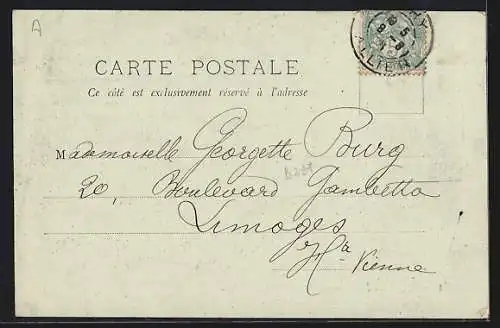 A
CARTE POSTALE
Ce côté est exclusivement réservé à l'adresse
Mademoiselle Georgette Burg
20, Boulevard Gambetta
Limoges
Hte Vienne
ALLIER